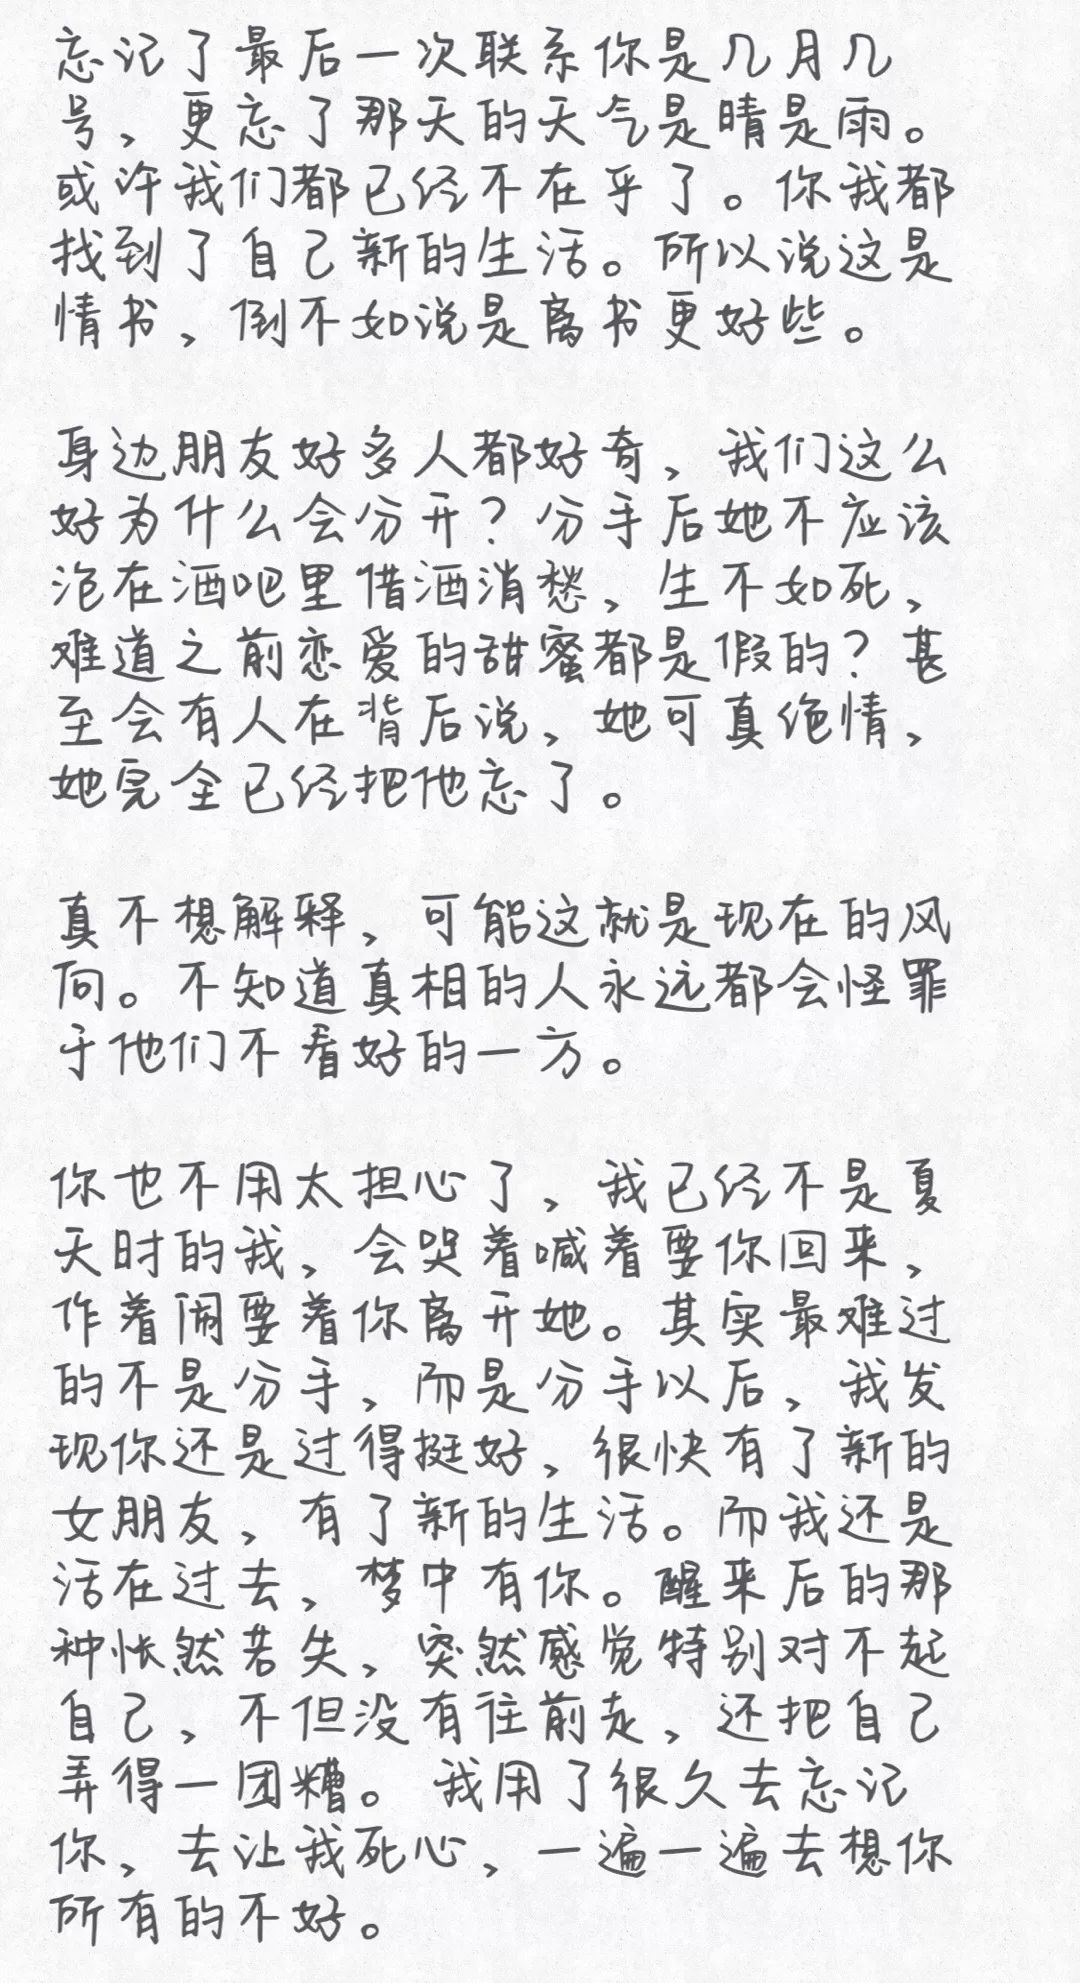 忘记了最后一次联系你是几月几
号，更忘了那天的天气是晴是雨。
或许我们都已经不在乎了。你我都
找到了自己新的生活。所以说这是
情书，倒不如说是离书更好些。
身边朋友好多人都好奇，我们这么
好为什么会分开？分手后她不应该
泡在酒吧里借酒消愁，生不如死，
难道之前恋爱的甜蜜都是假的？甚
至会有人在背后说，她可真绝情，
她完全已经把他忘了。
真不想解释，可能这就是现在的风
向。不知道真相的人永远都会怪罪
于他们不看好的一方。
你也不用太担心了，我已经不是夏
天时的我，会哭着喊着要你回来，
作着闹要着你离开她。其实最难过
的不是分手，而是分手以后，我发
现你还是过得挺好，很快有了新的
女朋友，有了新的生活。而我还是
活在过去，梦中有你。醒来后的那
种怅然若失，突然感觉特别对不起
自己，不但没有往前走，还把自己
弄得一团糟。我用了很久去忘记
你，去让我死心，一遍一遍去想你
所有的不好。